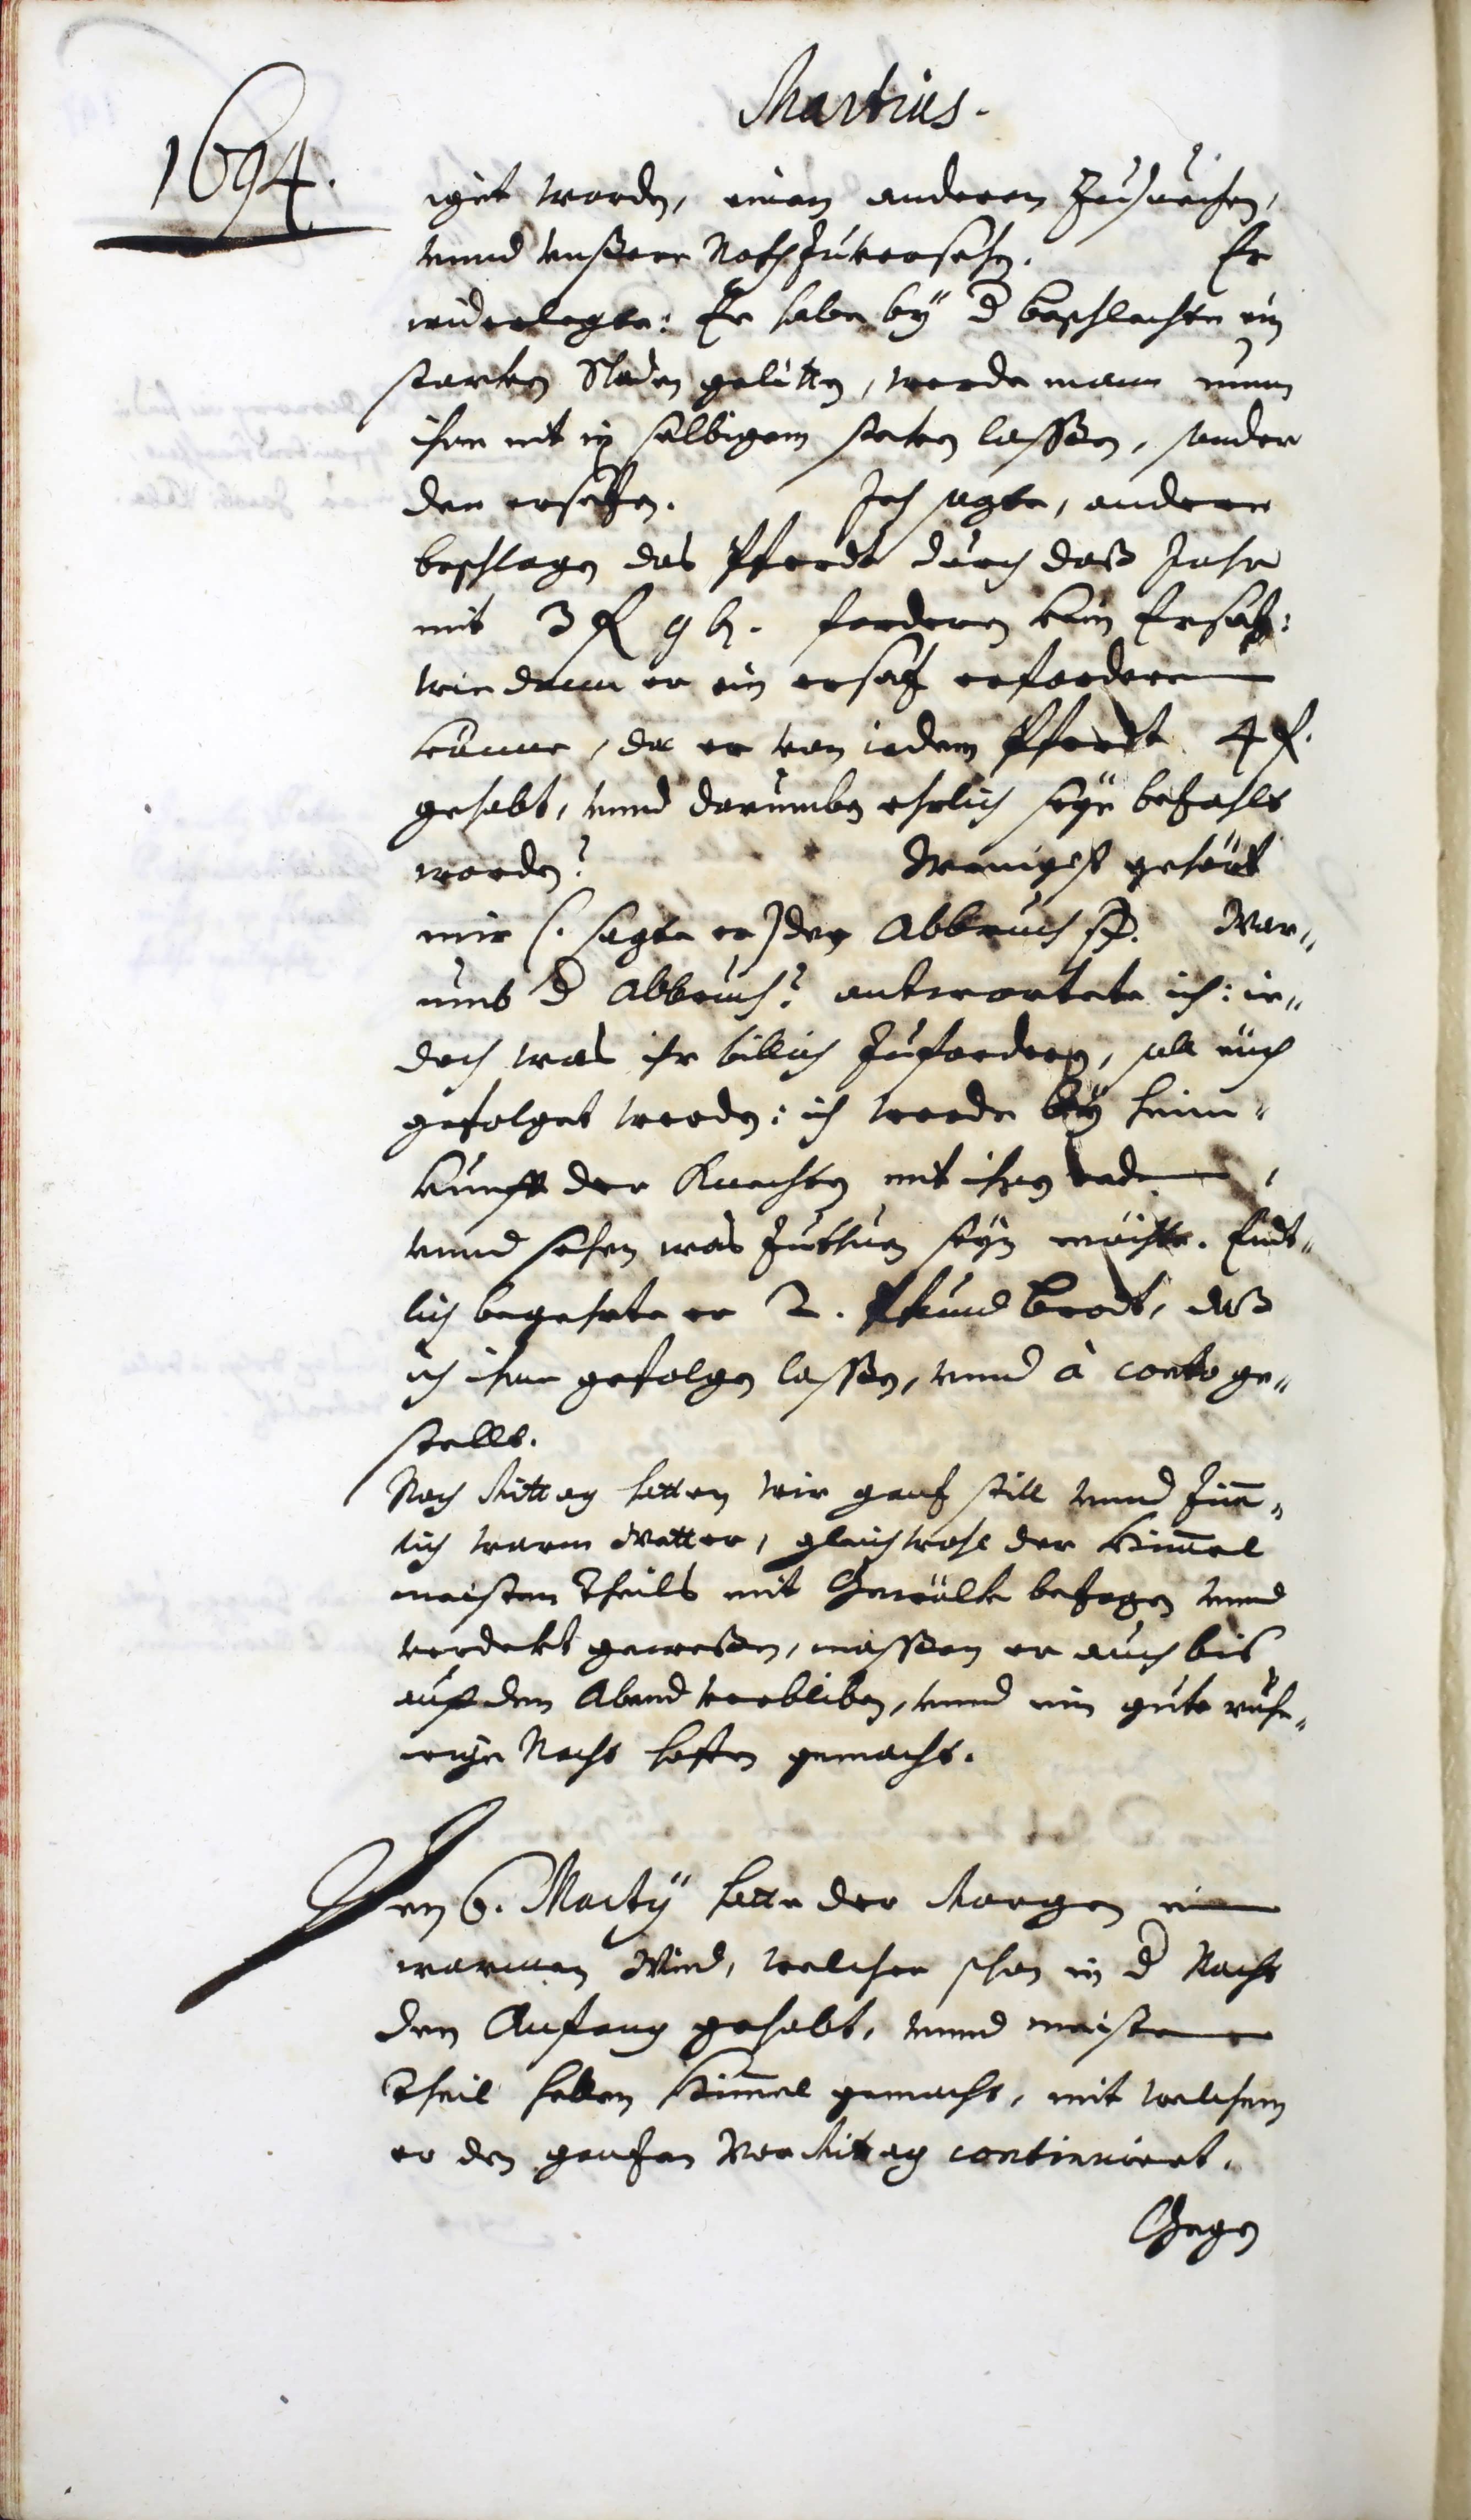 Martius.
1694.
iget worden, einen anderen Zusuechen,
unnd unßere Noth Zuversehen. Er
widerlegte: Er habe bÿ d beschlachte ein
starken Staden gelitten, werde mann numn
ihne nit in selbigem steken lassen, sonder
den ersetzen. Ich sagte, andere
beschlagen das Pferdt durch daß Jahr
mit 3 fl 9 b. forderen kein Ersatz:
wie dann er ein ersatz erforderen
könne, da er von iedem Pferdt 4 fl.
gehabt, unnd darumben ehrlich seÿe bezahlt
worden? Wenigst gehört
mir (. sagte er) den Abbruch War„
umb d Abbruch? antwortete ich: ie„
doch was ihr billich Zuforderen, soll eüch
gefolget werden: ich werde bÿ heim„
kunfft der Knechten mit ihnen reden,
unnd sehen was Zuthuen seÿn möchte. Endt„
lich begehrte er 2. Pfund Brodt, daß
ich ihme gefolgen lassen, unnd à conto ge„
stellt.
Nach Mittag hatten wir ganz still unnd Zim̅„
lich warm Wetter, gleichwohl der Him̅el
meisten Theils mit Gewölk bezogen unnd
verdekt gewesen, massen er auch bis
auf den Abend verbliben, unnd ein gute ruhe„
wige Nacht hoffen gemacht.
Den 6. Martÿ hatte der Morgen ein
warmen Wind, welcher schon in d Nacht
den Anfang gehabt, unnd meisten
Theil hellen Him̅el gemacht, mit welchem
er den ganzen Vor Mittag continuiert.
Gegen